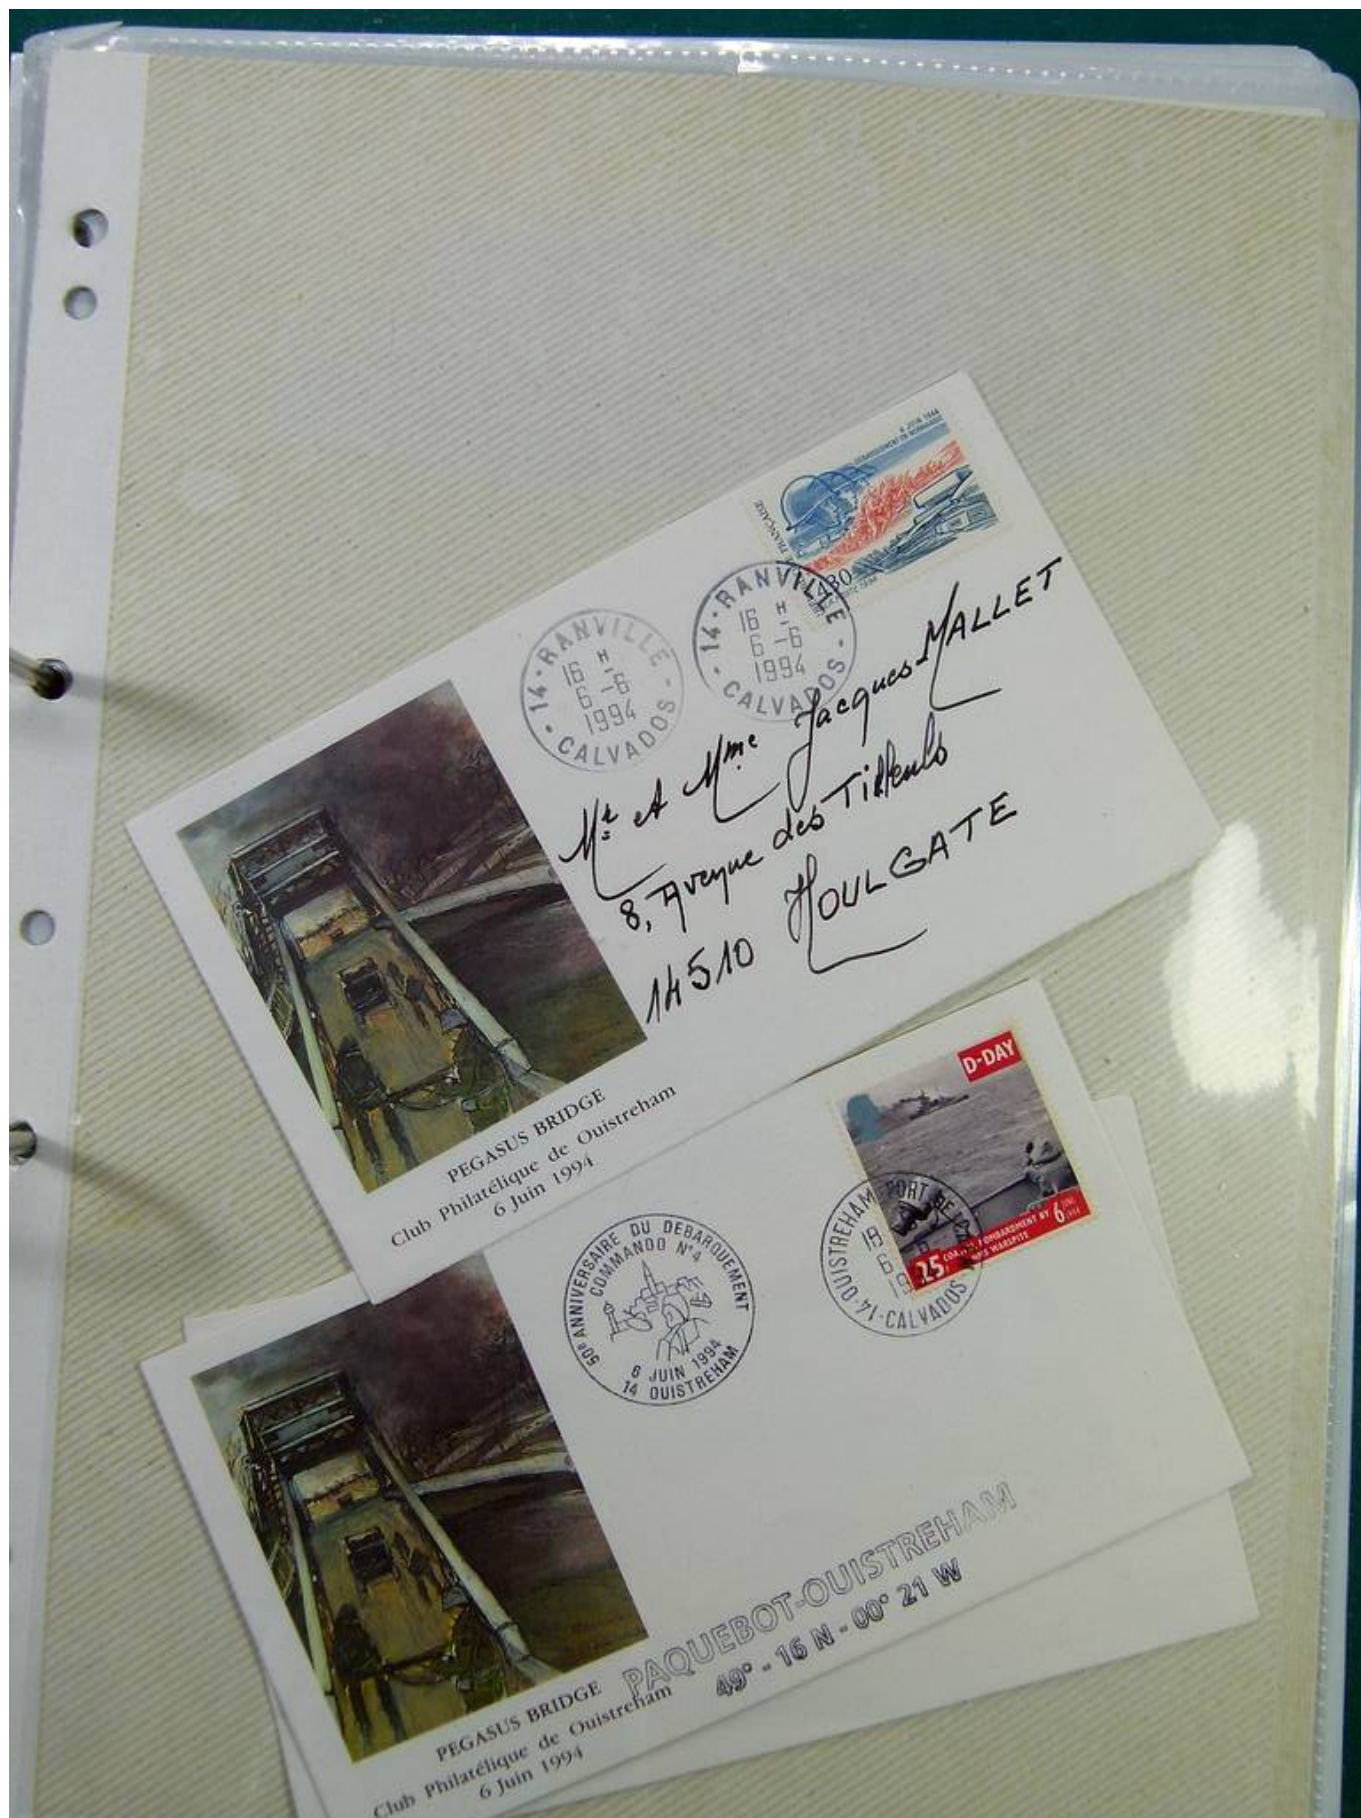 6 JUIN 1944
DÉBARQUEMENT EN NORMANDIE
FRANÇAISE
14 · RANVILLE
16 H
6 - 6
1994
· CALVADOS ·
14 · RANVILLE ·
16 H
6 - 6
1994
· CALVADOS
Mr et Mme Jacques MALLET
8, Avenue des Tilleuls
14510 HOULGATE
PEGASUS BRIDGE
Club Philatélique de Ouistreham
6 Juin 1994
D-DAY
25
BOMBARDMENT BY
WARSPITE
6 JUNE 1944
14 · OUISTREHAM PORT DE
18
6
19
· CALVADOS
50e ANNIVERSAIRE DU DEBARQUEMENT
COMMANDO N°4
6 JUIN 1994
14 OUISTREHAM
PAQUEBOT-OUISTREHAM
49° - 16 N - 00° 21 W
PEGASUS BRIDGE
Club Philatélique de Ouistreham
6 Juin 1994